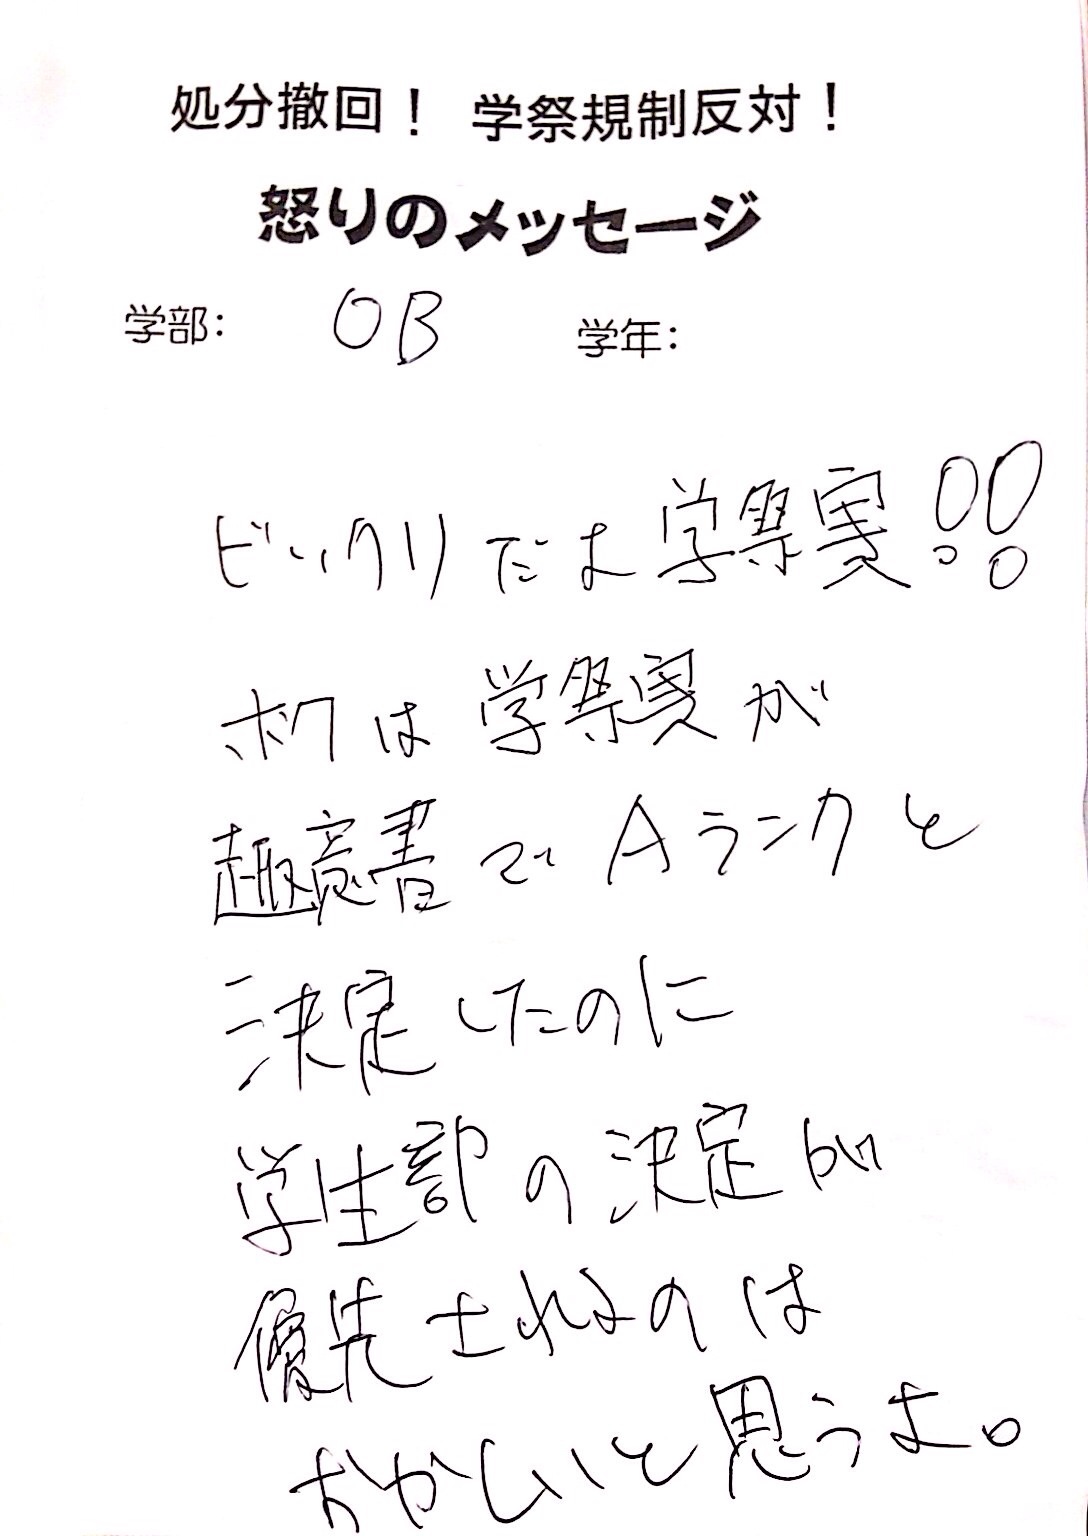 処分撤回！ 学祭規制反対！
怒りのメッセージ
学部： OB 学年：
ビックリだよ学祭実！！
ボクは学祭実が
趣意書でAランクと
決定したのに
学生部の決定が
優先されるのは
おかしいと思うよ。